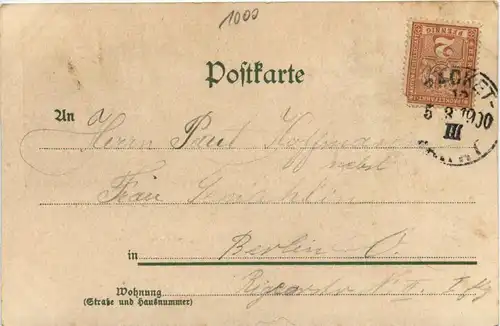 1000
2
Postkarte
PACKET-
12
5 3 1900
III
An
Herrn Paul Hoffmann
nebst
Frau Gemahlin
in Berlin O.
Wohnung
(Straße und Hausnummer)